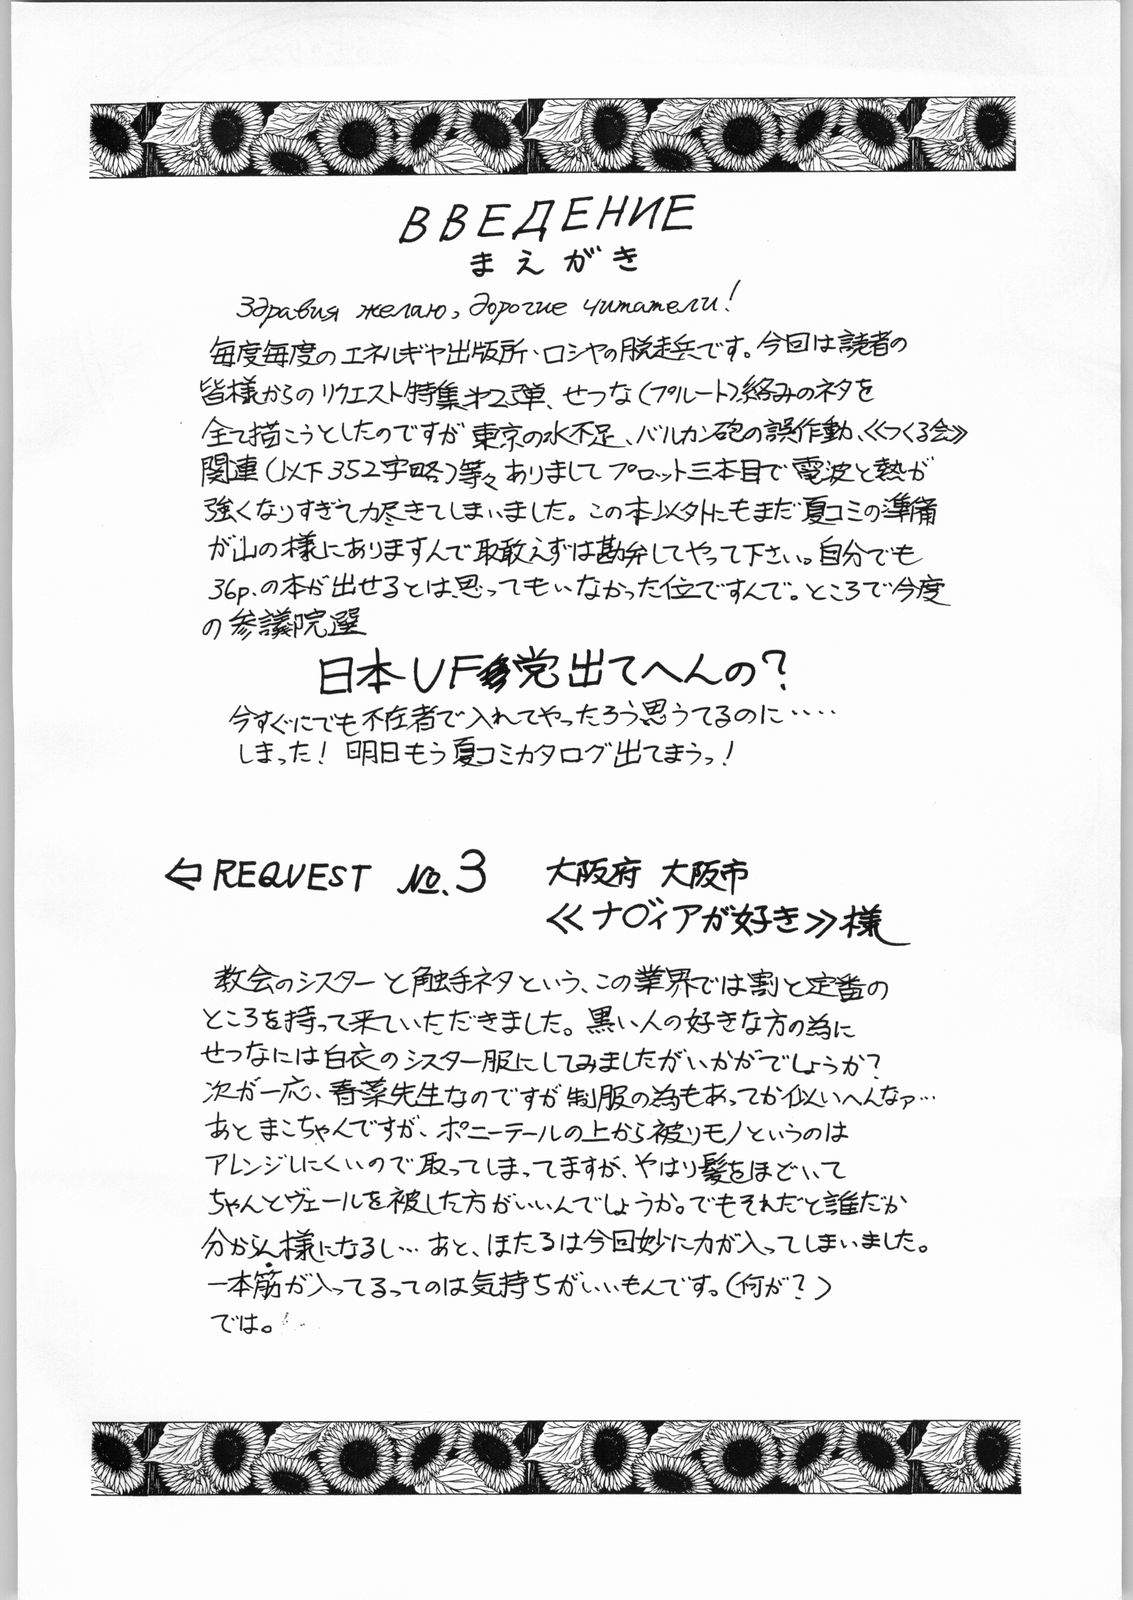 ВВЕДЕНИЕ
まえがき
Здравия желаю, дорогие читатели!
毎度毎度のエネルギヤ出版所・ロシヤの脱走兵です。今回は読者の
皆様からのリクエスト特集㐧2弾、せつな(プルート)絡みのネタを
全て描こうとしたのですが東京の水不足、バルカン砲の誤作動、≪つくる会≫
関連(以下352字略)等々ありましてプロット三本目で電波と熱が
強くなりすぎて力尽きてしまいました。この本以外にもまだ夏コミの準備
が山の様にありますんで取敢えずは勘弁してやって下さい。自分でも
36p.の本が出せるとは思ってもいなかった位ですんで。ところで今度
の参議院選
日本UF党出てへんの?
今すぐにでも不在者で入れてやったろう思うてるのに‥‥
しまった! 明日もう夏コミカタログ出てまうっ!
⇦REQUEST №.3 大阪府 大阪市
≪ナディアが好き≫様
教会のシスターと触手ネタという、この業界では割と定番の
ところを持って来ていただきました。黒い人の好きな方の為に
せつなには白衣のシスター服にしてみましたがいかがでしょうか?
次が一応、春菜先生なのですが制服の為もあってか似いへんなァ…
あとまこちゃんですが、ポニーテールの上から被りモノというのは
アレンジしにくいので取ってしまってますが、やはり髪をほどいて
ちゃんとヴェールを被した方がいいんでしょうか。でもそれだと誰だか
分からん様になるし…あと、ほたるは今回妙に力が入ってしまいました。
一本筋が入ってるってのは気持ちがいいもんです。(何が?)
では。